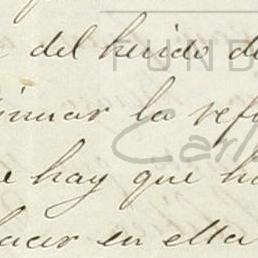 del herido de
inuar la ref
e hay que ha
acer en ella
FUND
Carl